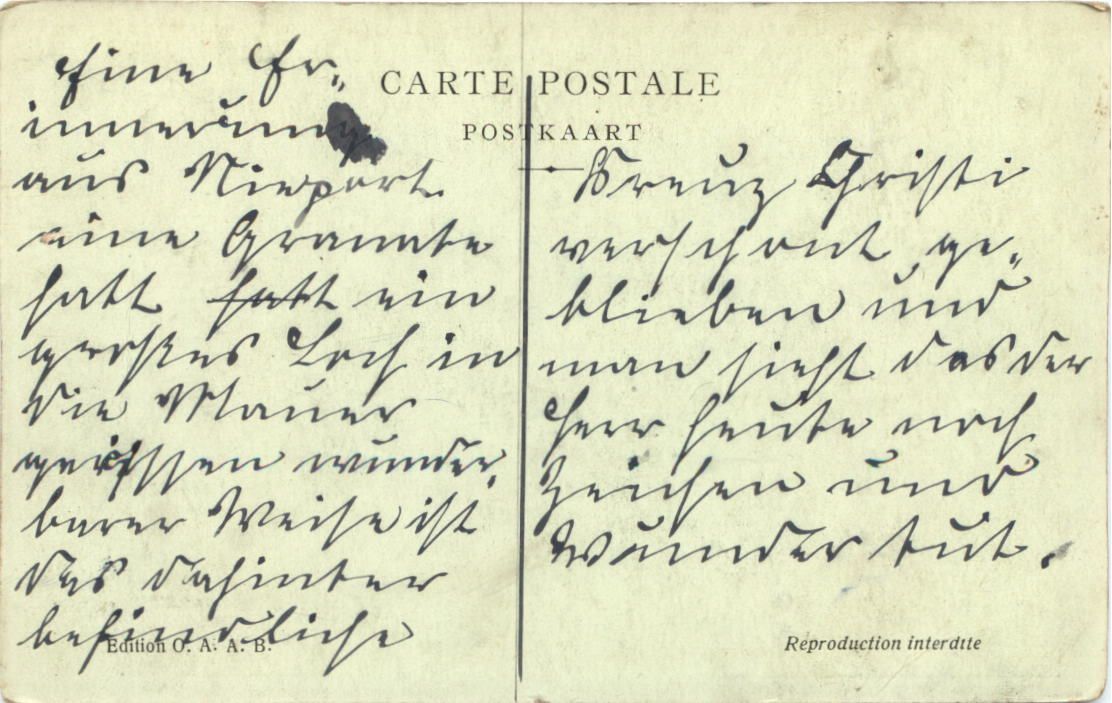 CARTE POSTALE
POSTKAART
Eine Er-
innerung
aus Nieport
eine Granate
hatt hatt ein
großes Loch in
die Mauer
gerissen wunder-
barer Weise ist
das dahinter
befindliche
Kreuz Christi
verschont ge-
blieben und
man sieht das der
Herr heute noch
Zeichen und
Wunder tut.
Edition O. A. A. B.
Reproduction interdite